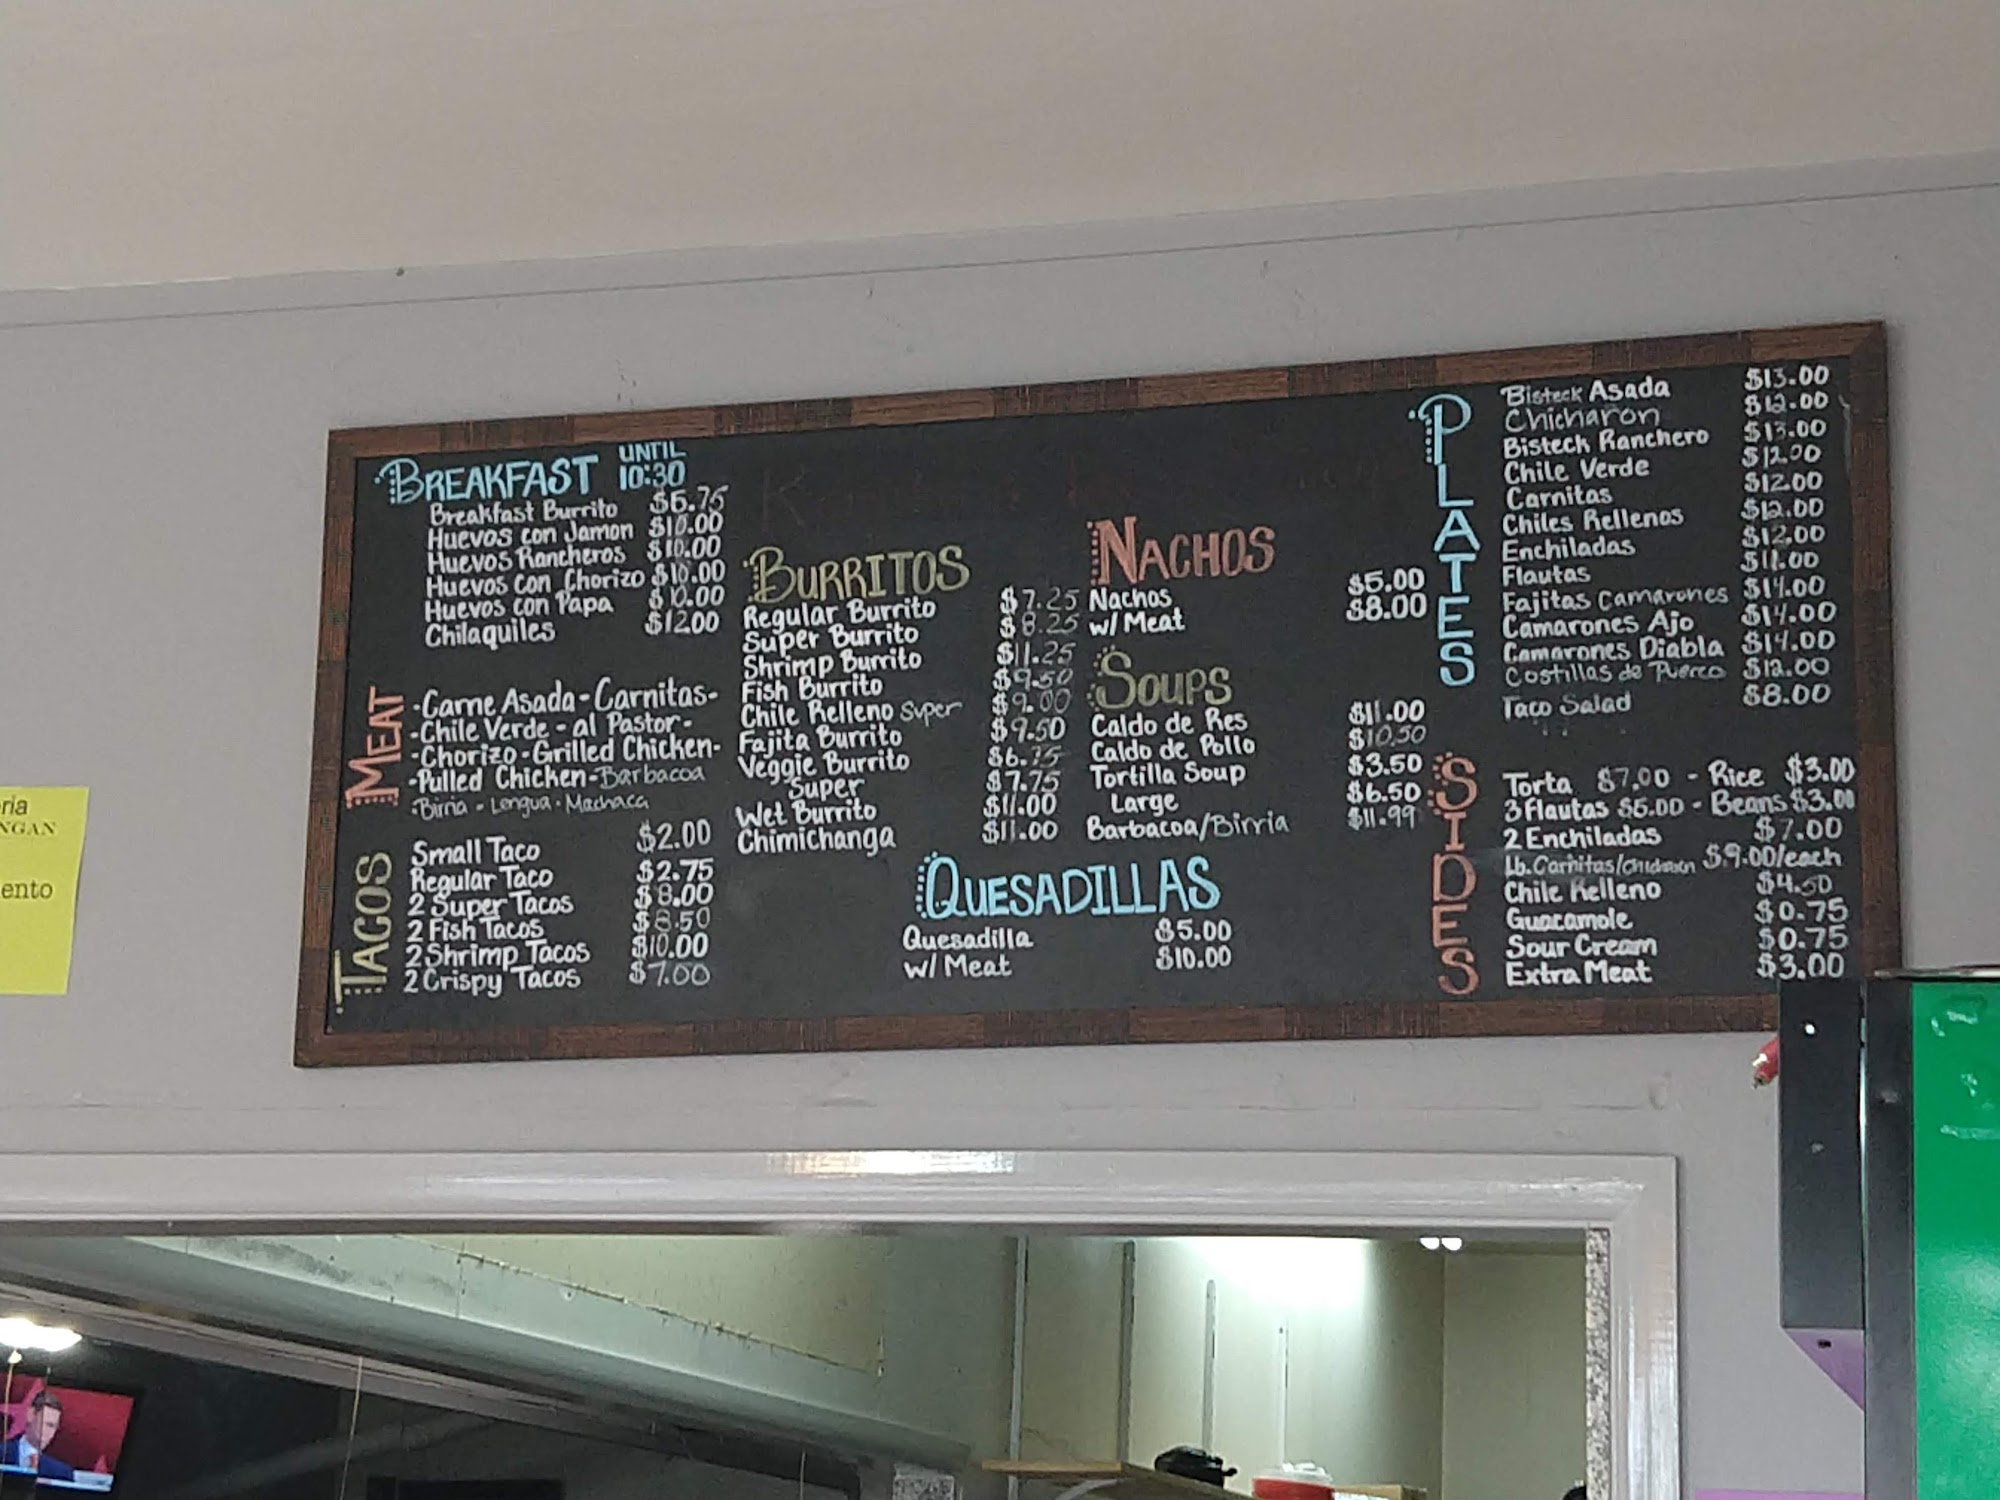 BREAKFAST UNTIL 10:30
Breakfast Burrito $6.75
Huevos con Jamon $10.00
Huevos Rancheros $10.00
Huevos con Chorizo $10.00
Huevos con Papa $10.00
Chilaquiles $12.00
MEAT
-Carne Asada-Carnitas-
-Chile Verde-al Pastor-
-Chorizo-Grilled Chicken-
-Pulled Chicken-Barbacoa
-Birria-Lengua-Machaca
TACOS
Small Taco $2.00
Regular Taco $2.75
2 Super Tacos $8.00
2 Fish Tacos $8.50
2 Shrimp Tacos $10.00
2 Crispy Tacos $7.00
BURRITOS
Regular Burrito $7.25
Super Burrito $8.25
Shrimp Burrito $11.25
Fish Burrito $9.50
Chile Relleno Super $9.00
Fajita Burrito $9.50
Veggie Burrito $6.75
Super $7.75
Wet Burrito $11.00
Chimichanga $11.00
NACHOS
Nachos $5.00
w/ Meat $8.00
SOUPS
Caldo de Res $11.00
Caldo de Pollo $10.50
Tortilla Soup $3.50
Large $6.50
Barbacoa/Birria $11.99
QUESADILLAS
Quesadilla $5.00
w/ Meat $10.00
PLATES
Bisteck Asada $13.00
Chicharon $12.00
Bisteck Ranchero $13.00
Chile Verde $12.00
Carnitas $12.00
Chiles Rellenos $12.00
Enchiladas $12.00
Flautas $11.00
Fajitas Camarones $14.00
Camarones Ajo $14.00
Camarones Diabla $14.00
Costillas de Puerco $12.00
Taco Salad $8.00
SIDES
Torta $7.00 - Rice $3.00
3 Flautas $5.00 - Beans $3.00
2 Enchiladas $7.00
Lb. Carnitas/ $9.00/each
Chile Relleno $4.50
Guacamole $0.75
Sour Cream $0.75
Extra Meat $3.00
ria
NGAN
ento